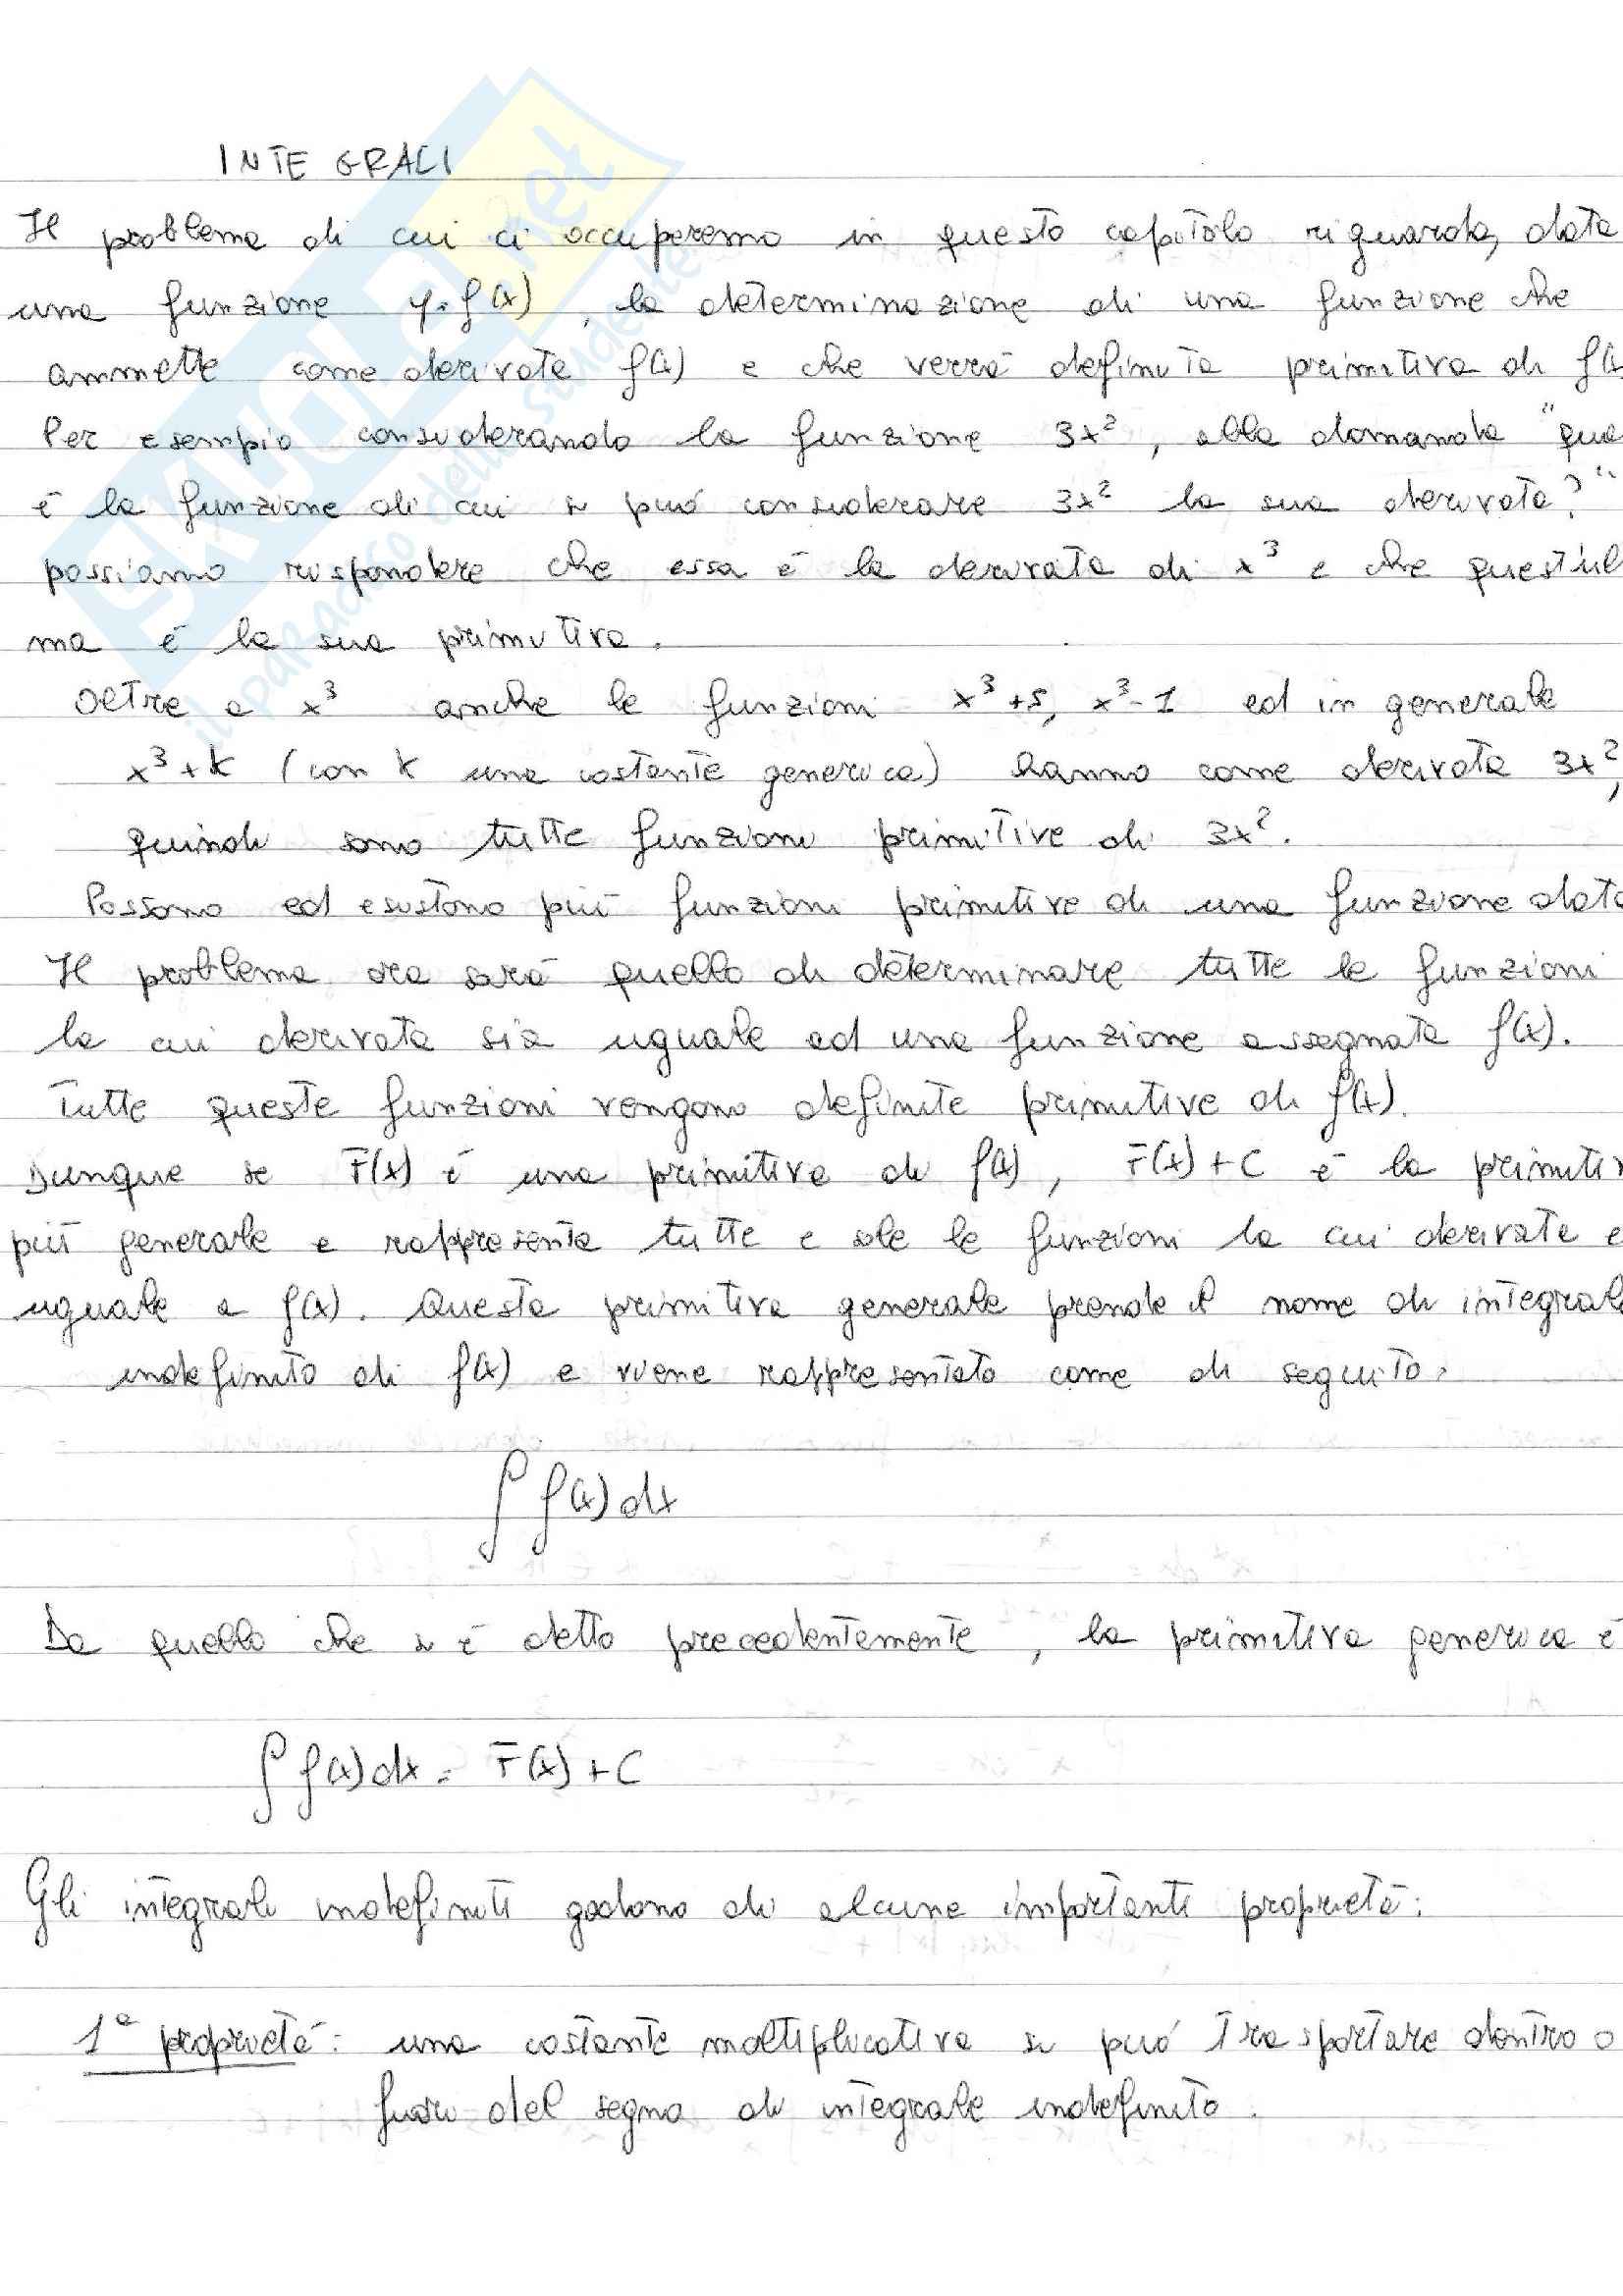 INTEGRALI
Il problema di cui ci occuperemo in questo capitolo riguarda, data
una funzione y=f(x), la determinazione di una funzione che
ammette come derivata f(x) e che verrà definita primitiva di f(x
Per esempio considerando la funzione 3x², alla domanda "qua
è la funzione di cui si può considerare 3x² la sua derivata?"
possiamo rispondere che essa è la derivata di x³ e che quest'ul
ma è la sua primitiva.
Oltre a x³ anche le funzioni x³+5, x³-1 ed in generale
x³+k (con k una costante generica) hanno come derivata 3x²,
quindi sono tutte funzioni primitive di 3x².
Possono ed esistono più funzioni primitive di una funzione data
Il problema ora sarà quello di determinare tutte le funzioni
la cui derivata sia uguale ad una funzione assegnata f(x).
Tutte queste funzioni vengono definite primitive di f(x).
Dunque se F(x) è una primitiva di f(x), F(x)+C è la primitiv
più generale e rappresenta tutte e sole le funzioni la cui derivata è
uguale a f(x). Questa primitiva generale prende il nome di integrale
indefinito di f(x) e viene rappresentato come di seguito:
∫ f(x) dx
Da quello che si è detto precedentemente, la primitiva generica è
∫ f(x) dx = F(x) + C
Gli integrali indefiniti godono di alcune importanti proprietà:
1ª proprietà: una costante moltiplicativa si può trasportare dentro o
fuori del segno di integrale indefinito.
SKUOLA.net
il paradiso dello studente